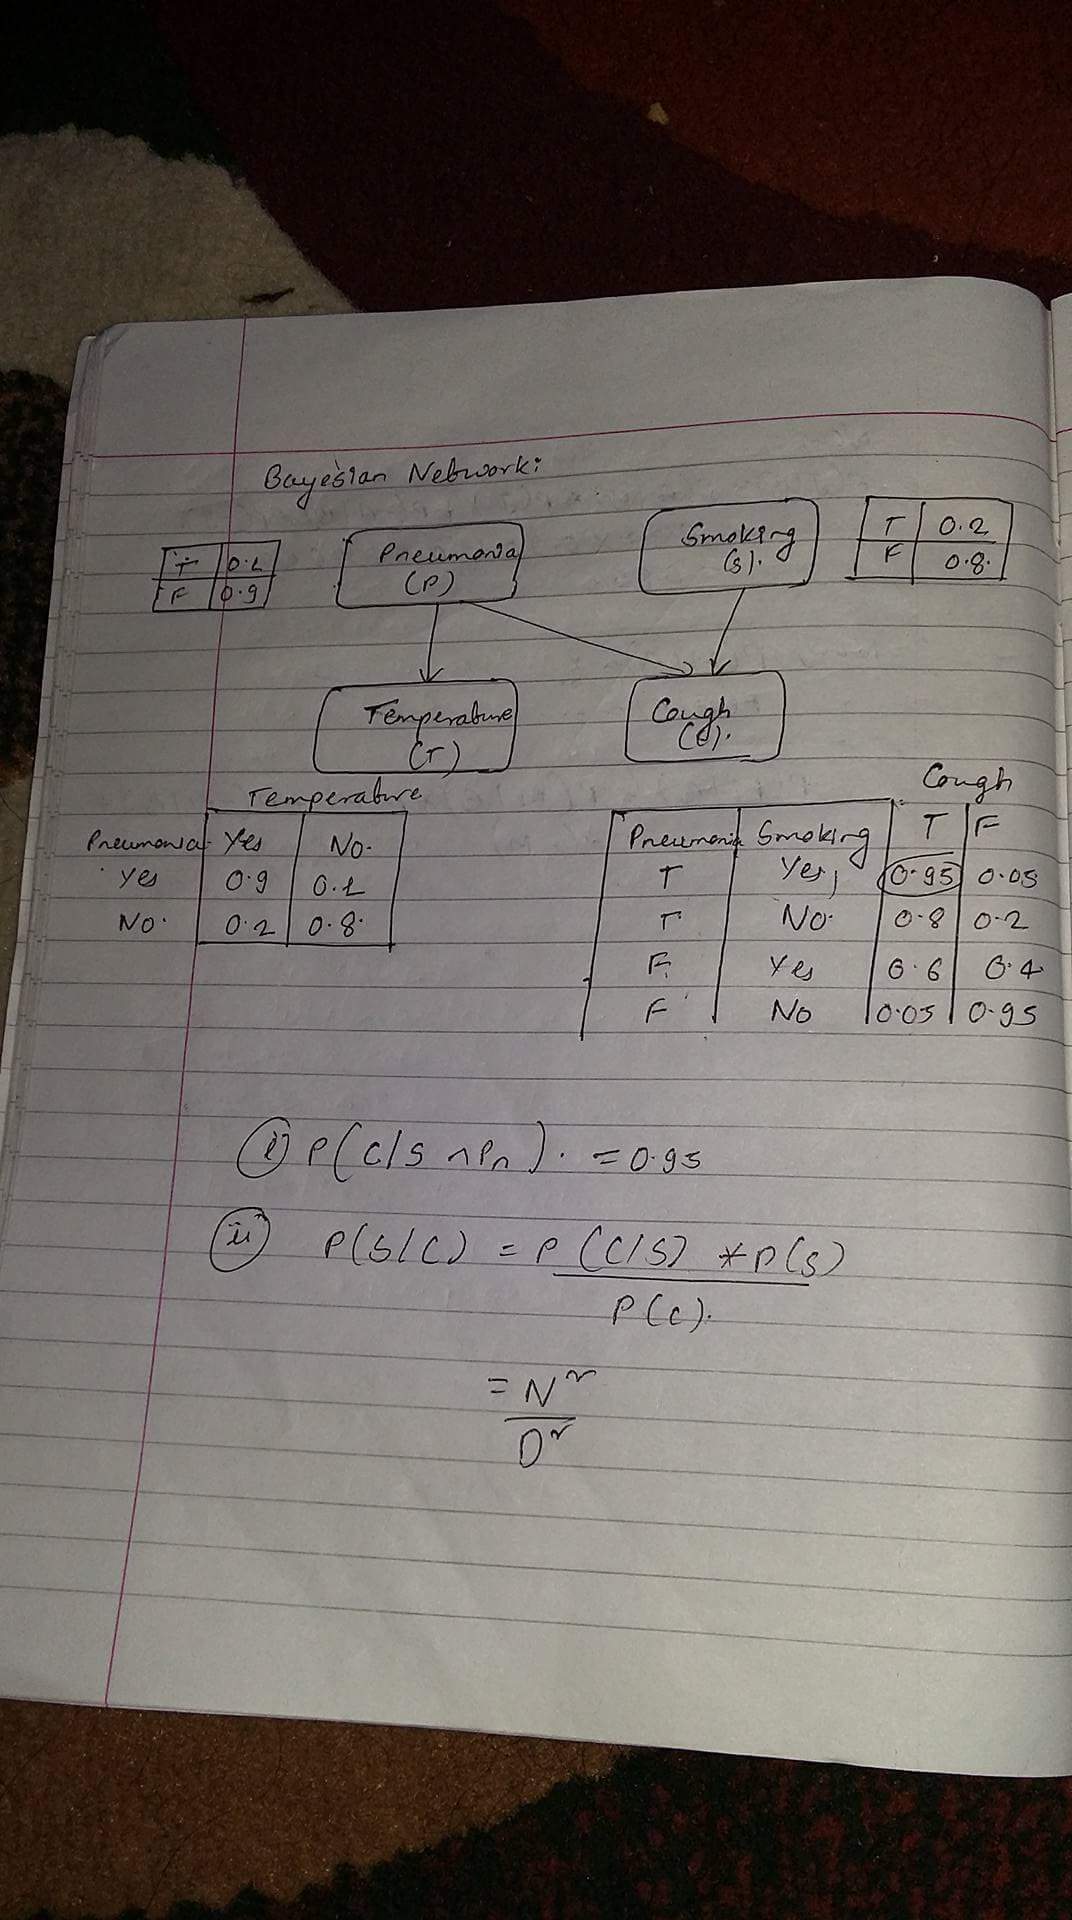 Bayesian Network:
T 0.1
F 0.9
Pneumonia
(P)
Smoking
(S).
T 0.2
F 0.8.
Temperature
(T)
Cough
(C).
Temperature
Pneumonia Yes No.
Yes 0.9 0.1
No. 0.2 0.8.
Cough
Pneumonia Smoking T F
T Yes, 0.95 0.05
T No. 0.8 0.2
F Yes 0.6 0.4
F No 0.05 0.95
(i) P(C/S ∩ Pn). = 0.95
(ii) P(S/C) = P(C/S) * P(S)
P(C).
= Nr
Dr